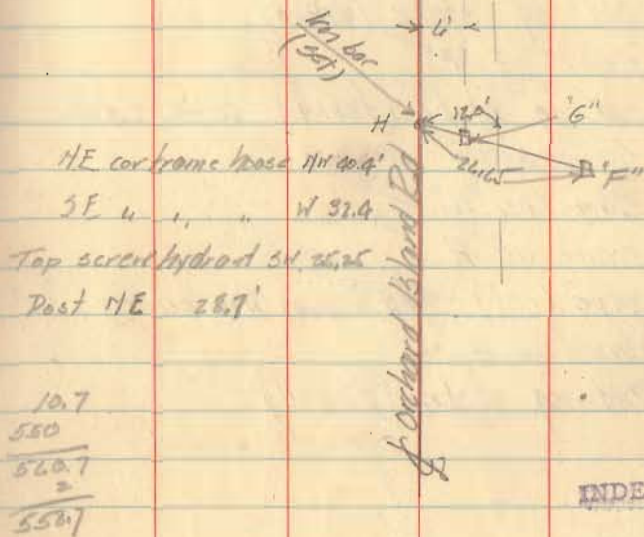 Km bar
(set)
4'
H
12.0'
"G"
26.65
"F"
NE cor frame house NW 40.4'
SE " " " W 32.4
Top screw hydrant SW 25.25
Post NE 28.7'
℄ Orchard Island Rd
10.7
550
560.7
2
558.7
INDE